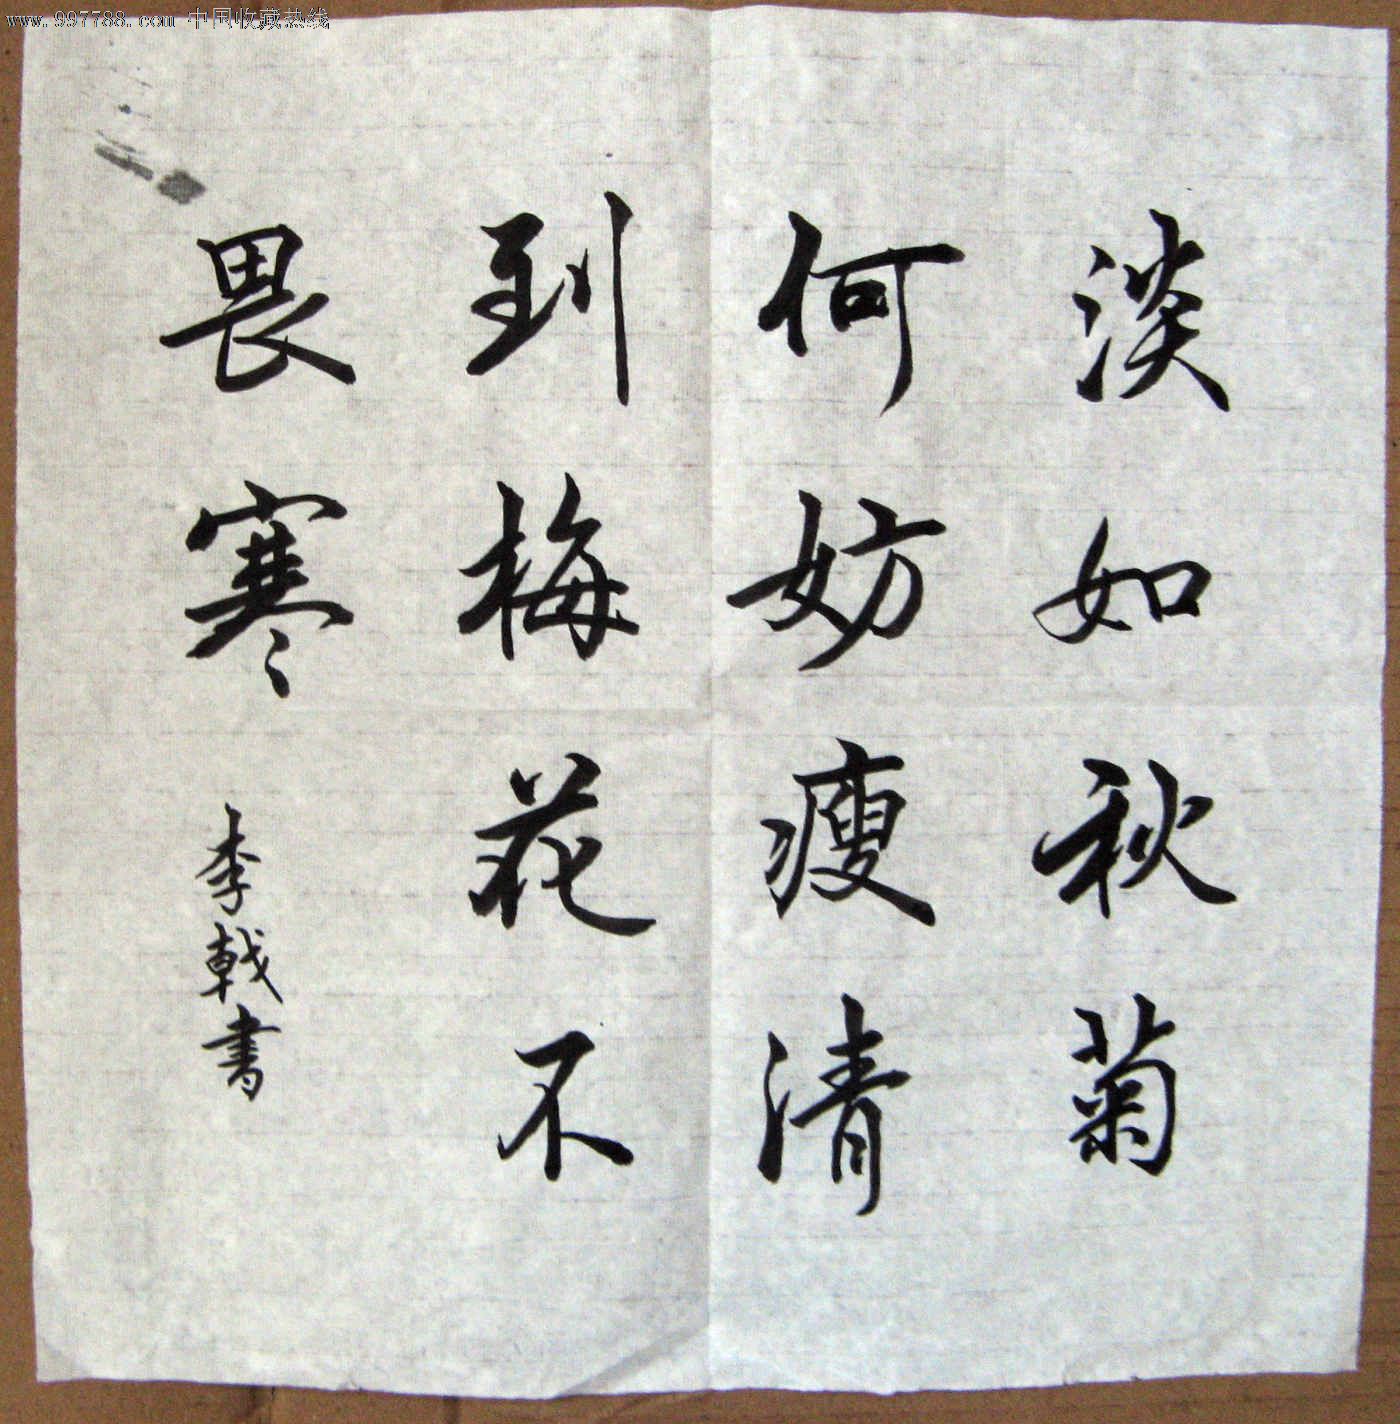 www.997788.com 中国收藏热线
淡如秋菊
何妨瘦清
到梅花不
畏寒
李戟书